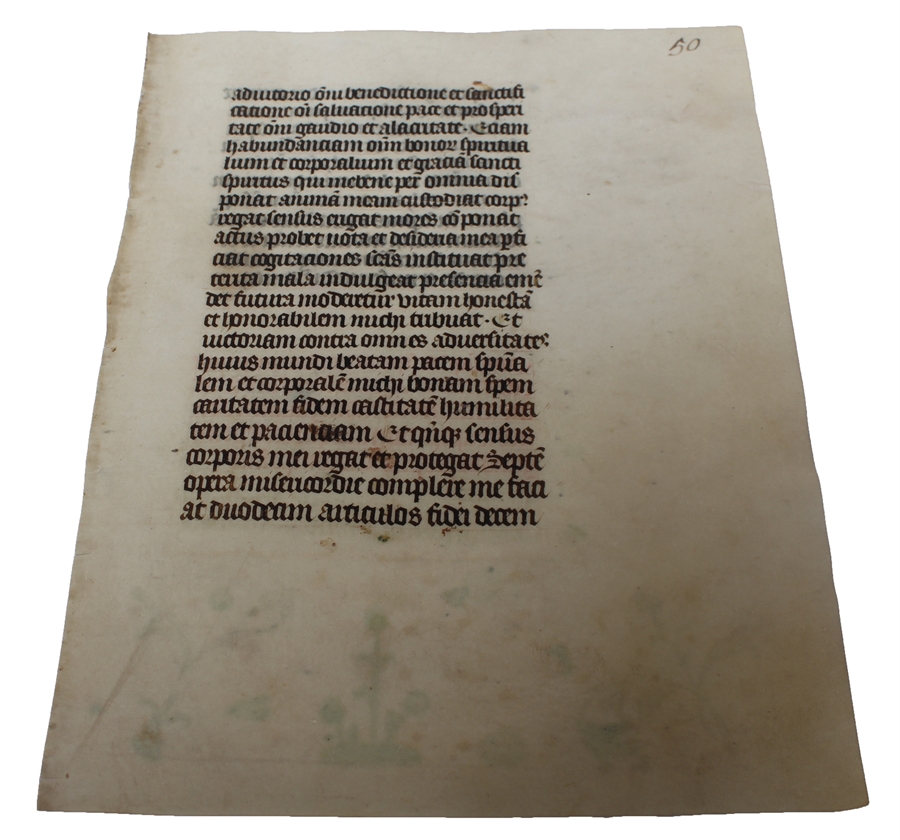 50
adiutorio om̄i benedictione et sanctifi
catione om̄i saluacione pace et prosperi
tate om̄i gaudio et alacritate. Etiam
habundanciam om̄m bonoꝝ spiritua
lium et corporalium et graciā sancti
spiritus qui me bene per omnia dis
ponat animā meam custodiat corpꝰ
regat sensus erigat mores cōponat
actus probet uota et desideria mea ꝑfi
ciat cogitaciones scās instituat pre
terita mala indulgeat presencia emē
det futura moderetur vitam honestā
et honorabilem michi tribuat. Et
uictoriam contra omnes aduersitateꝭ
huius mundi beatam pacem spūa
lem et corporalē michi bonam spem
caritatem fidem castitatē humilita
tem et pacienciam Et qnqꝫ sensus
corporis mei regat et protegat Septē
opera misericordie complere me faci
at duodecim articulos fidei decem